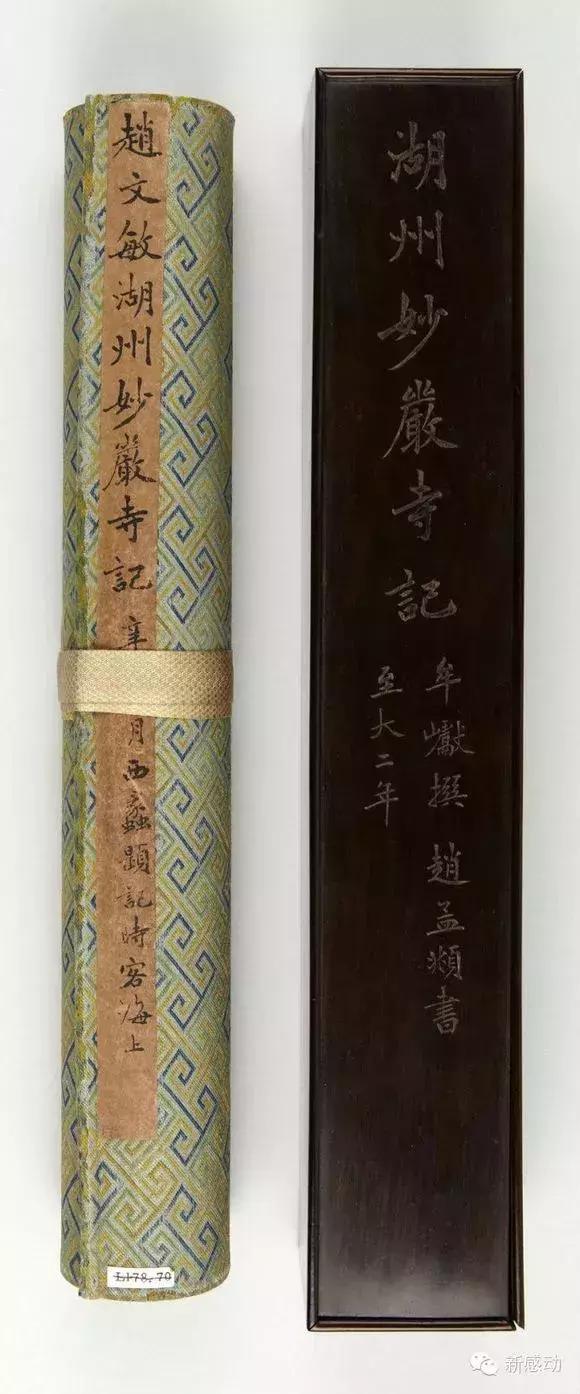 趙文敏湖州妙嚴寺記
辛
月西蠡題記時客海上
L178.70
湖州妙嚴寺記
牟巘撰 趙孟頫書
至大二年
新感动